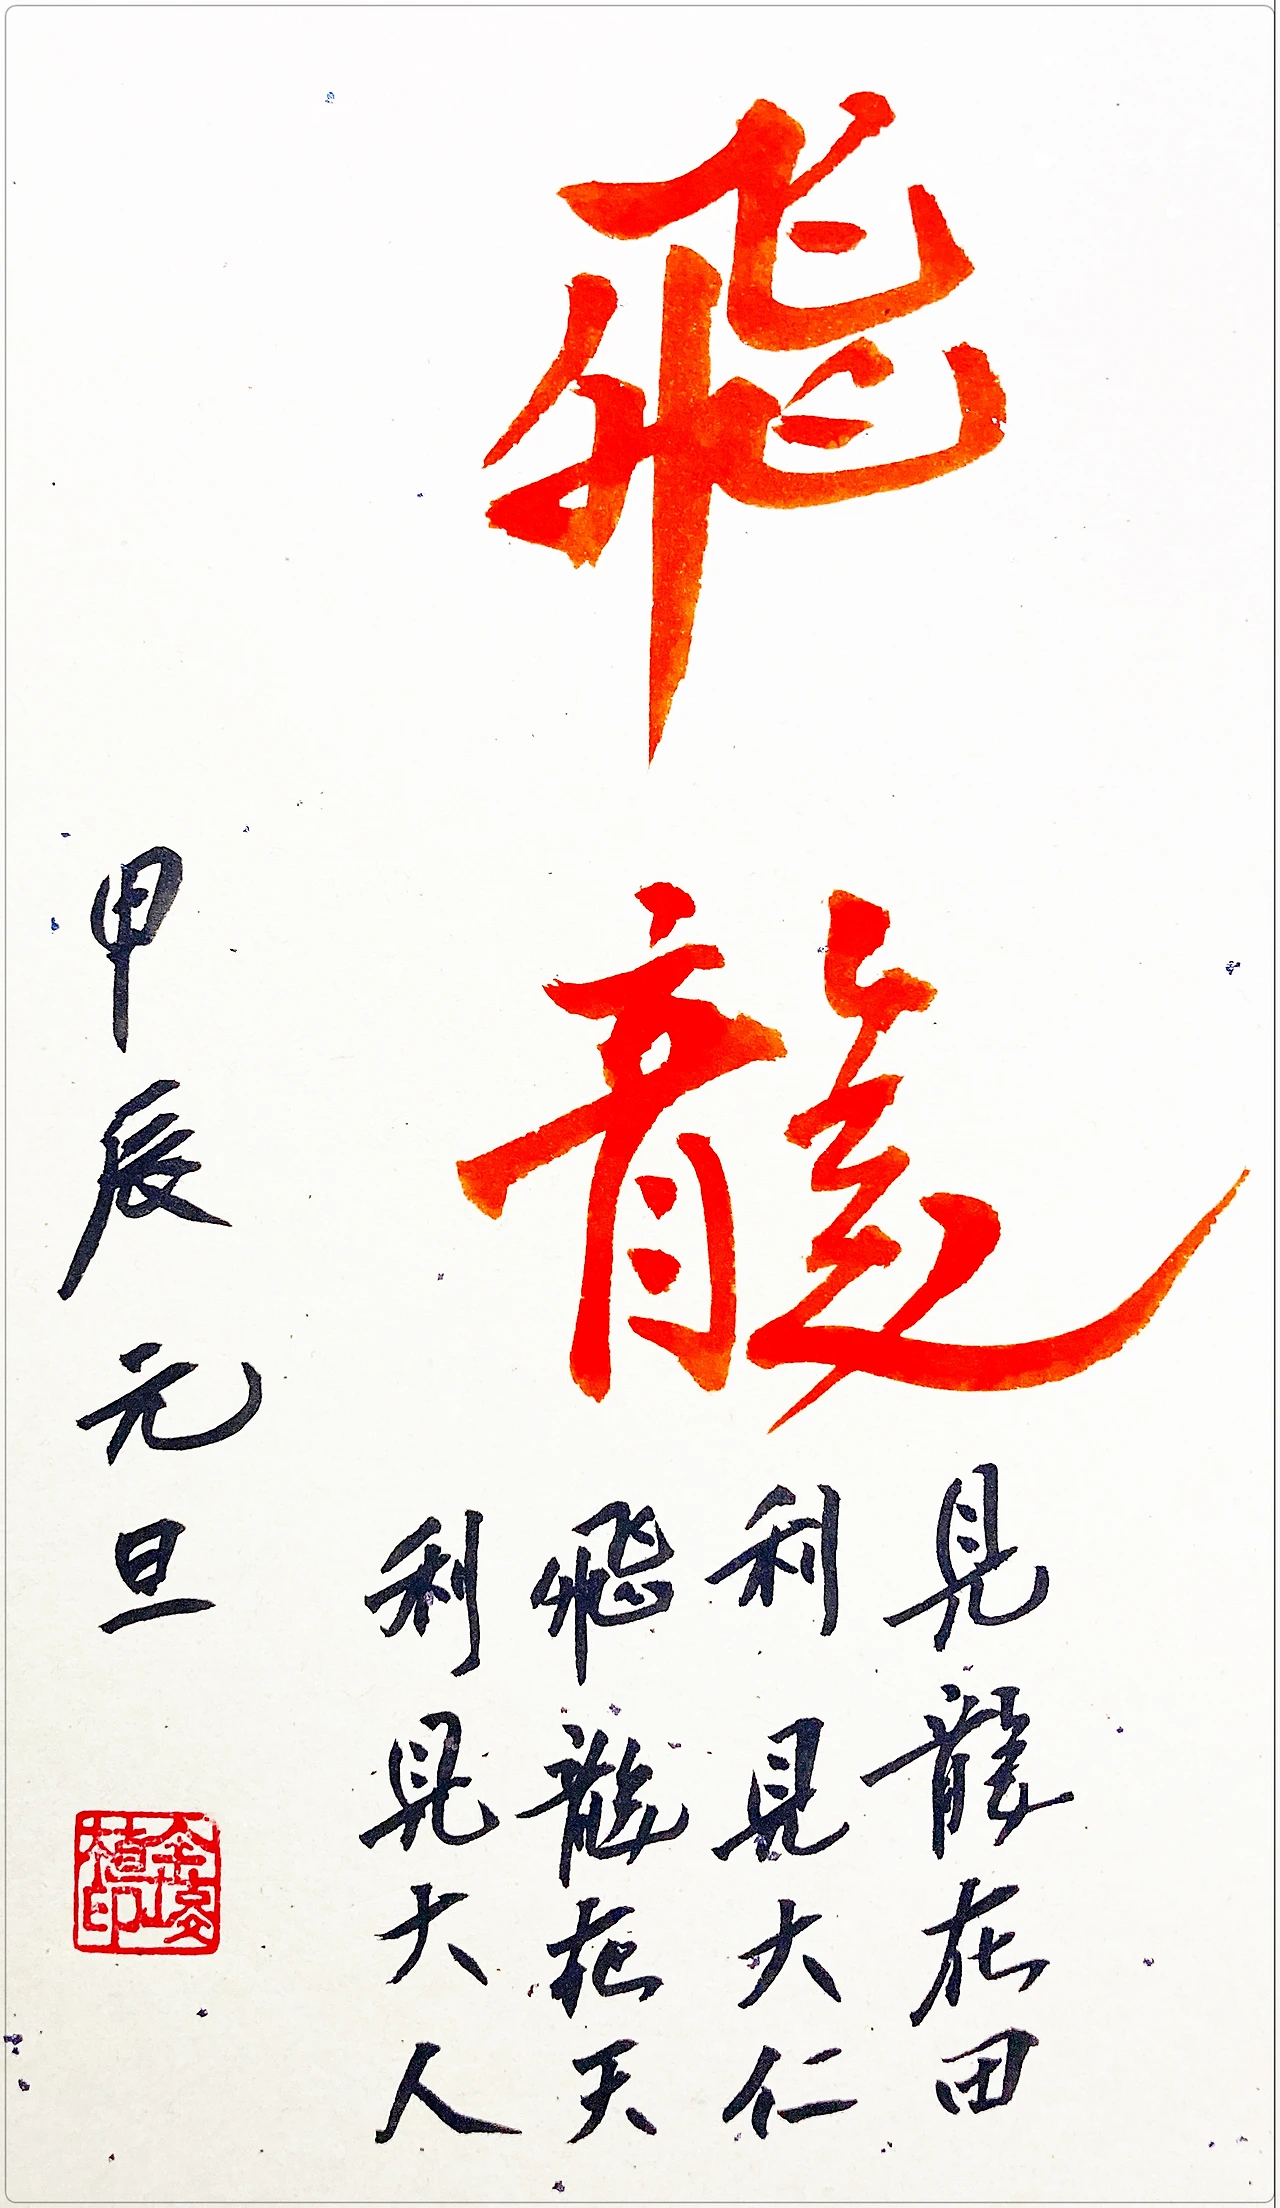 飛龍
見龍在田
利見大仁
飛龍在天
利見大人
甲辰元旦